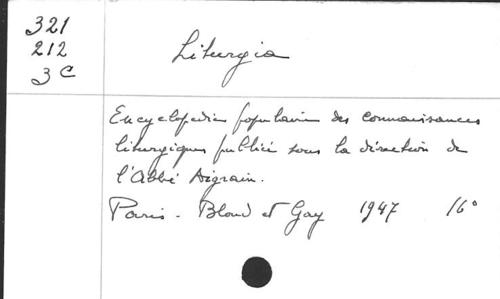 321
212
3 C
Liturgia
Encyclopedie populaire des connaissances
liturgiques publiée sous la direction de
l'Abbé Aigrain.
Paris - Bloud et Gay 1947 16°